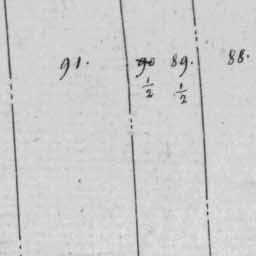 91. 90 89. 88.
1/2 1/2